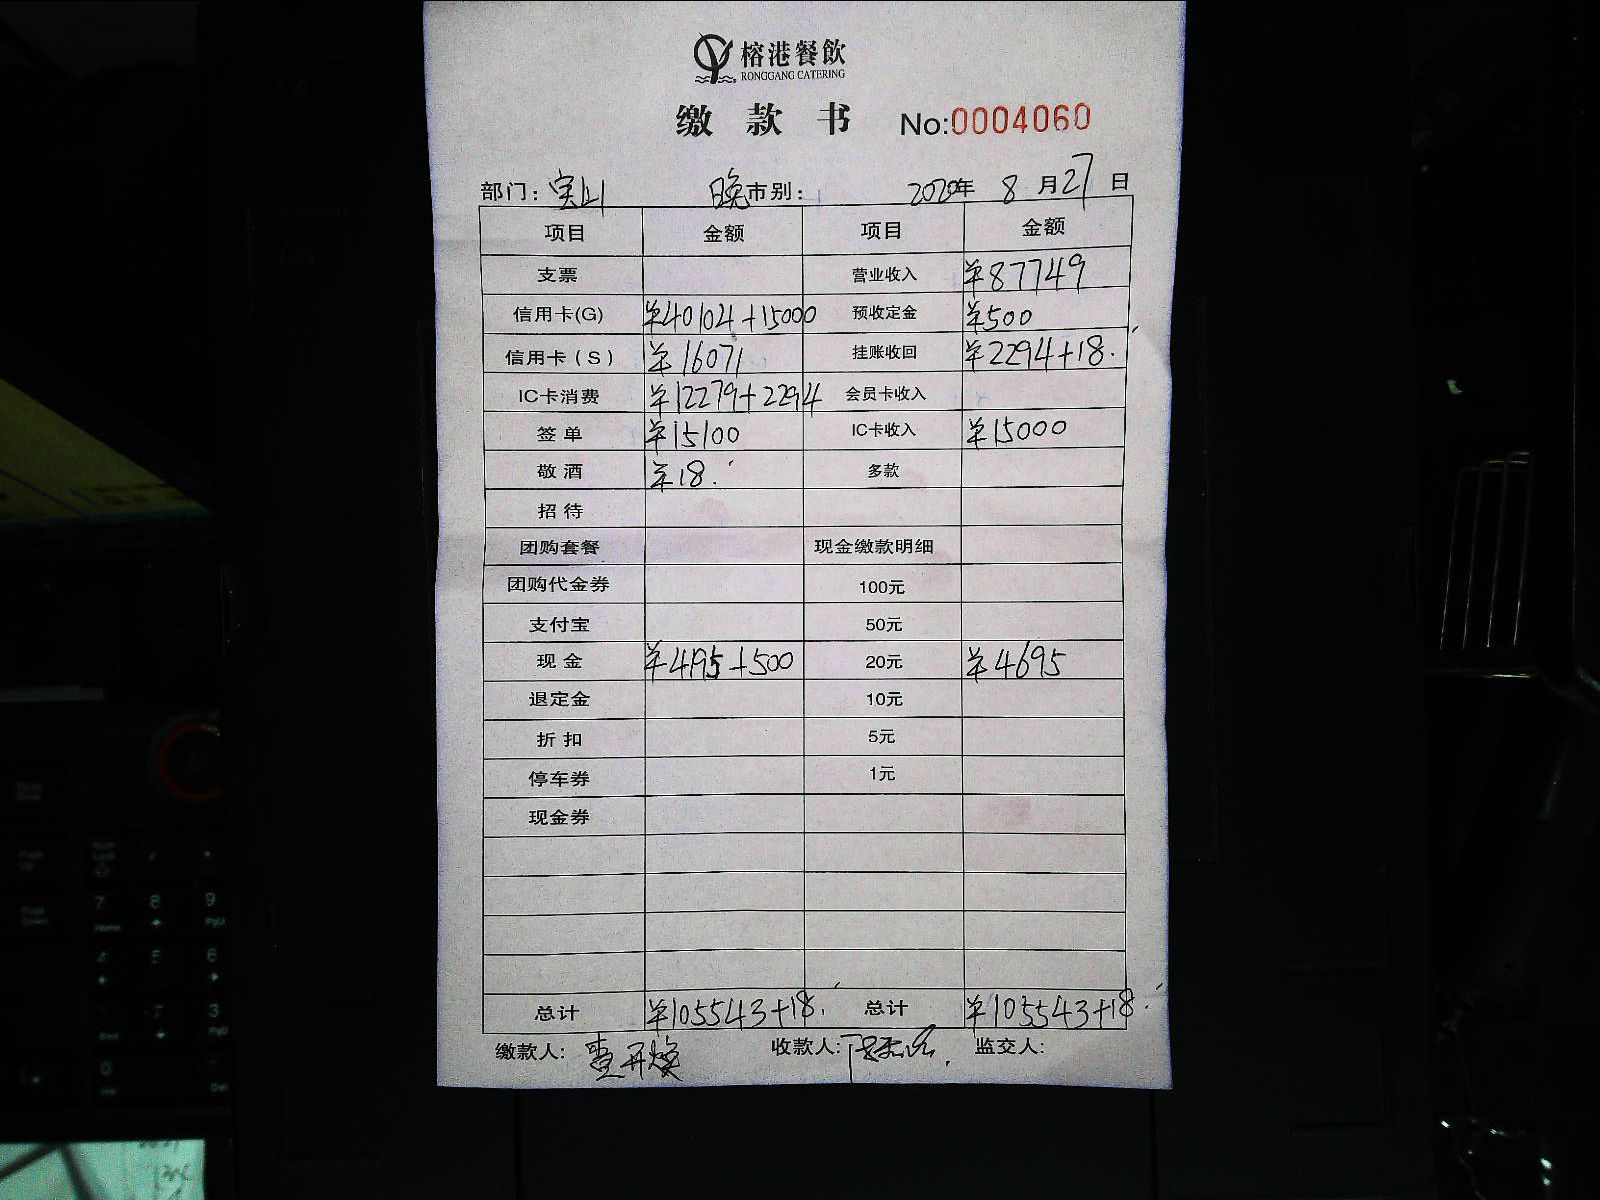 榕港餐飲
RONGGANG CATERING
缴 款 书 No:0004060
部门: 宝山 晚市别: 2020年 8月27日
项目 金额 项目 金额
支票 营业收入 ¥87749
信用卡(G) ¥40104+15000 预收定金 ¥500
信用卡(S) ¥16071 挂账收回 ¥2294+18.
IC卡消费 ¥12279+2294 会员卡收入
签单 ¥15100 IC卡收入 ¥15000
敬酒 ¥18. 多款
招待
团购套餐 现金缴款明细
团购代金券 100元
支付宝 50元
现金 ¥4195+500 20元 ¥4695
退定金 10元
折扣 5元
停车券 1元
现金券
总计 ¥105543+18. 总计 ¥105543+18.
缴款人: 收款人: 监交人: